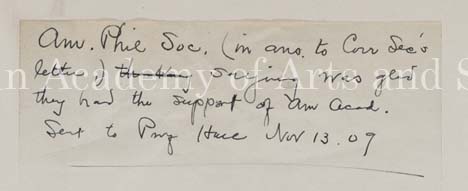 Am. Phil Soc. (in ans. to Corr Sec's
letter) thanking Saying was glad
they had the support of Am Acad.
Sent to Prof Hall Nov 13. 09
n Academy of Arts and S